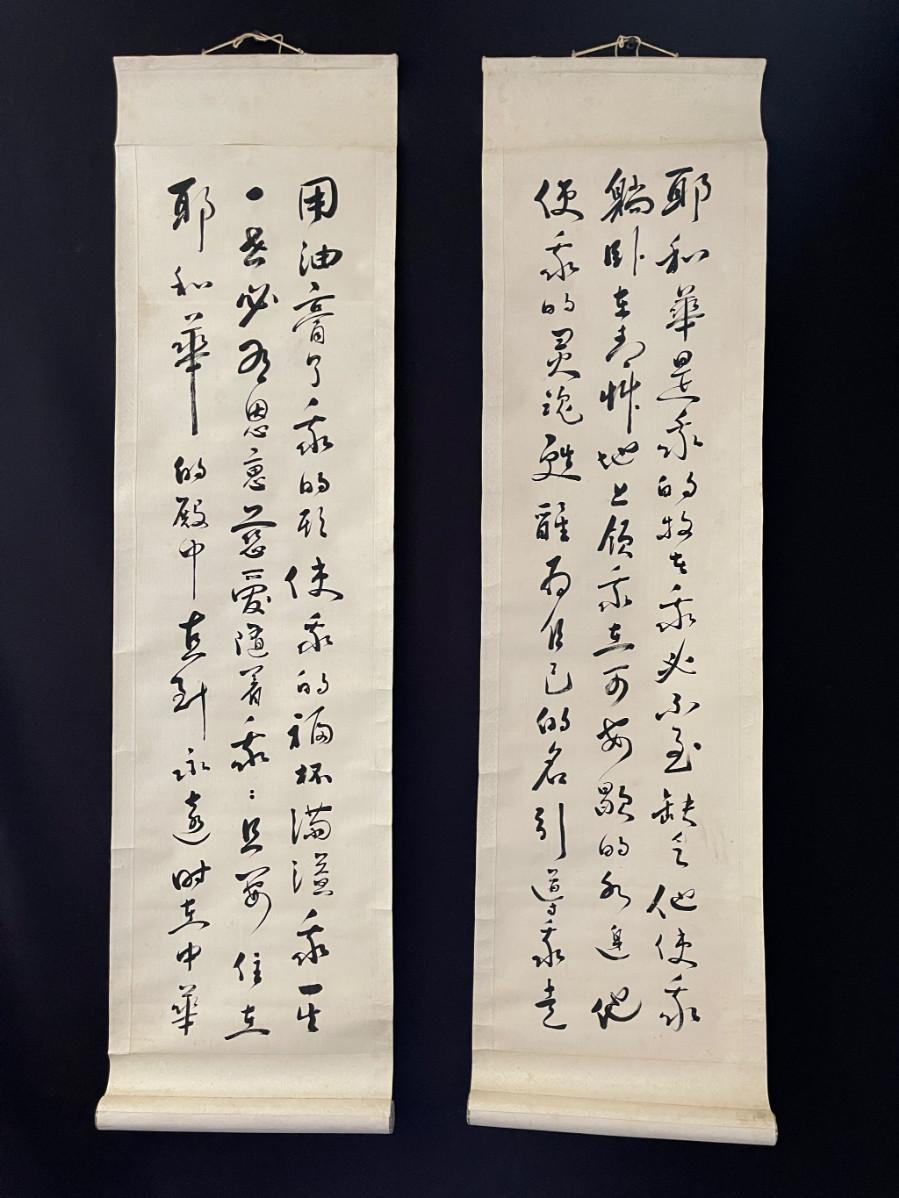 耶和華是我的牧者我必不至缺乏他使我
躺臥在青艸地上領我在可安歇的水邊他
使我的灵魂甦醒為自己的名引導我走
用油膏了我的頭使我的福杯滿溢我一生
一世必有恩惠慈愛隨着我〻且要住在
耶和華的殿中直到永遠时在中華